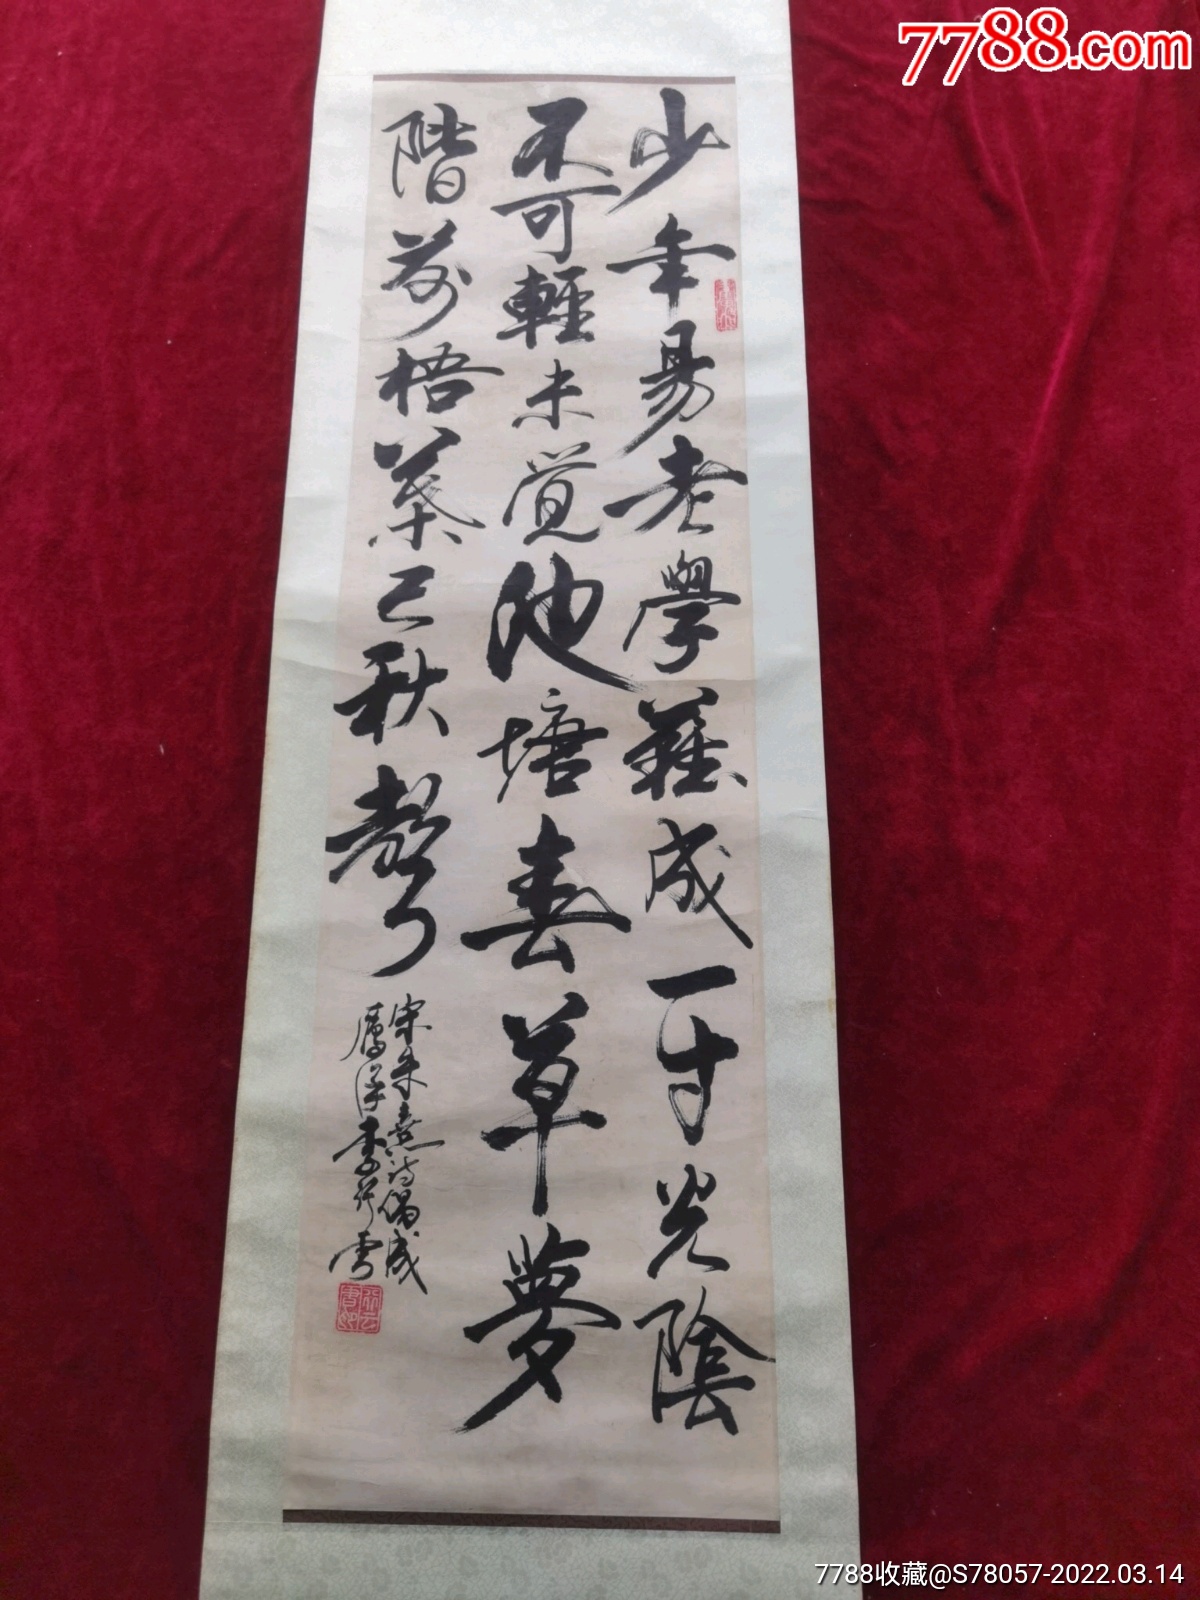 7788.com
少年易老學難成一寸光陰
不可輕未覚池塘春草夢
階前梧葉已秋聲
宋朱熹詩偶成
李行雲
7788收藏@S78057-2022.03.14